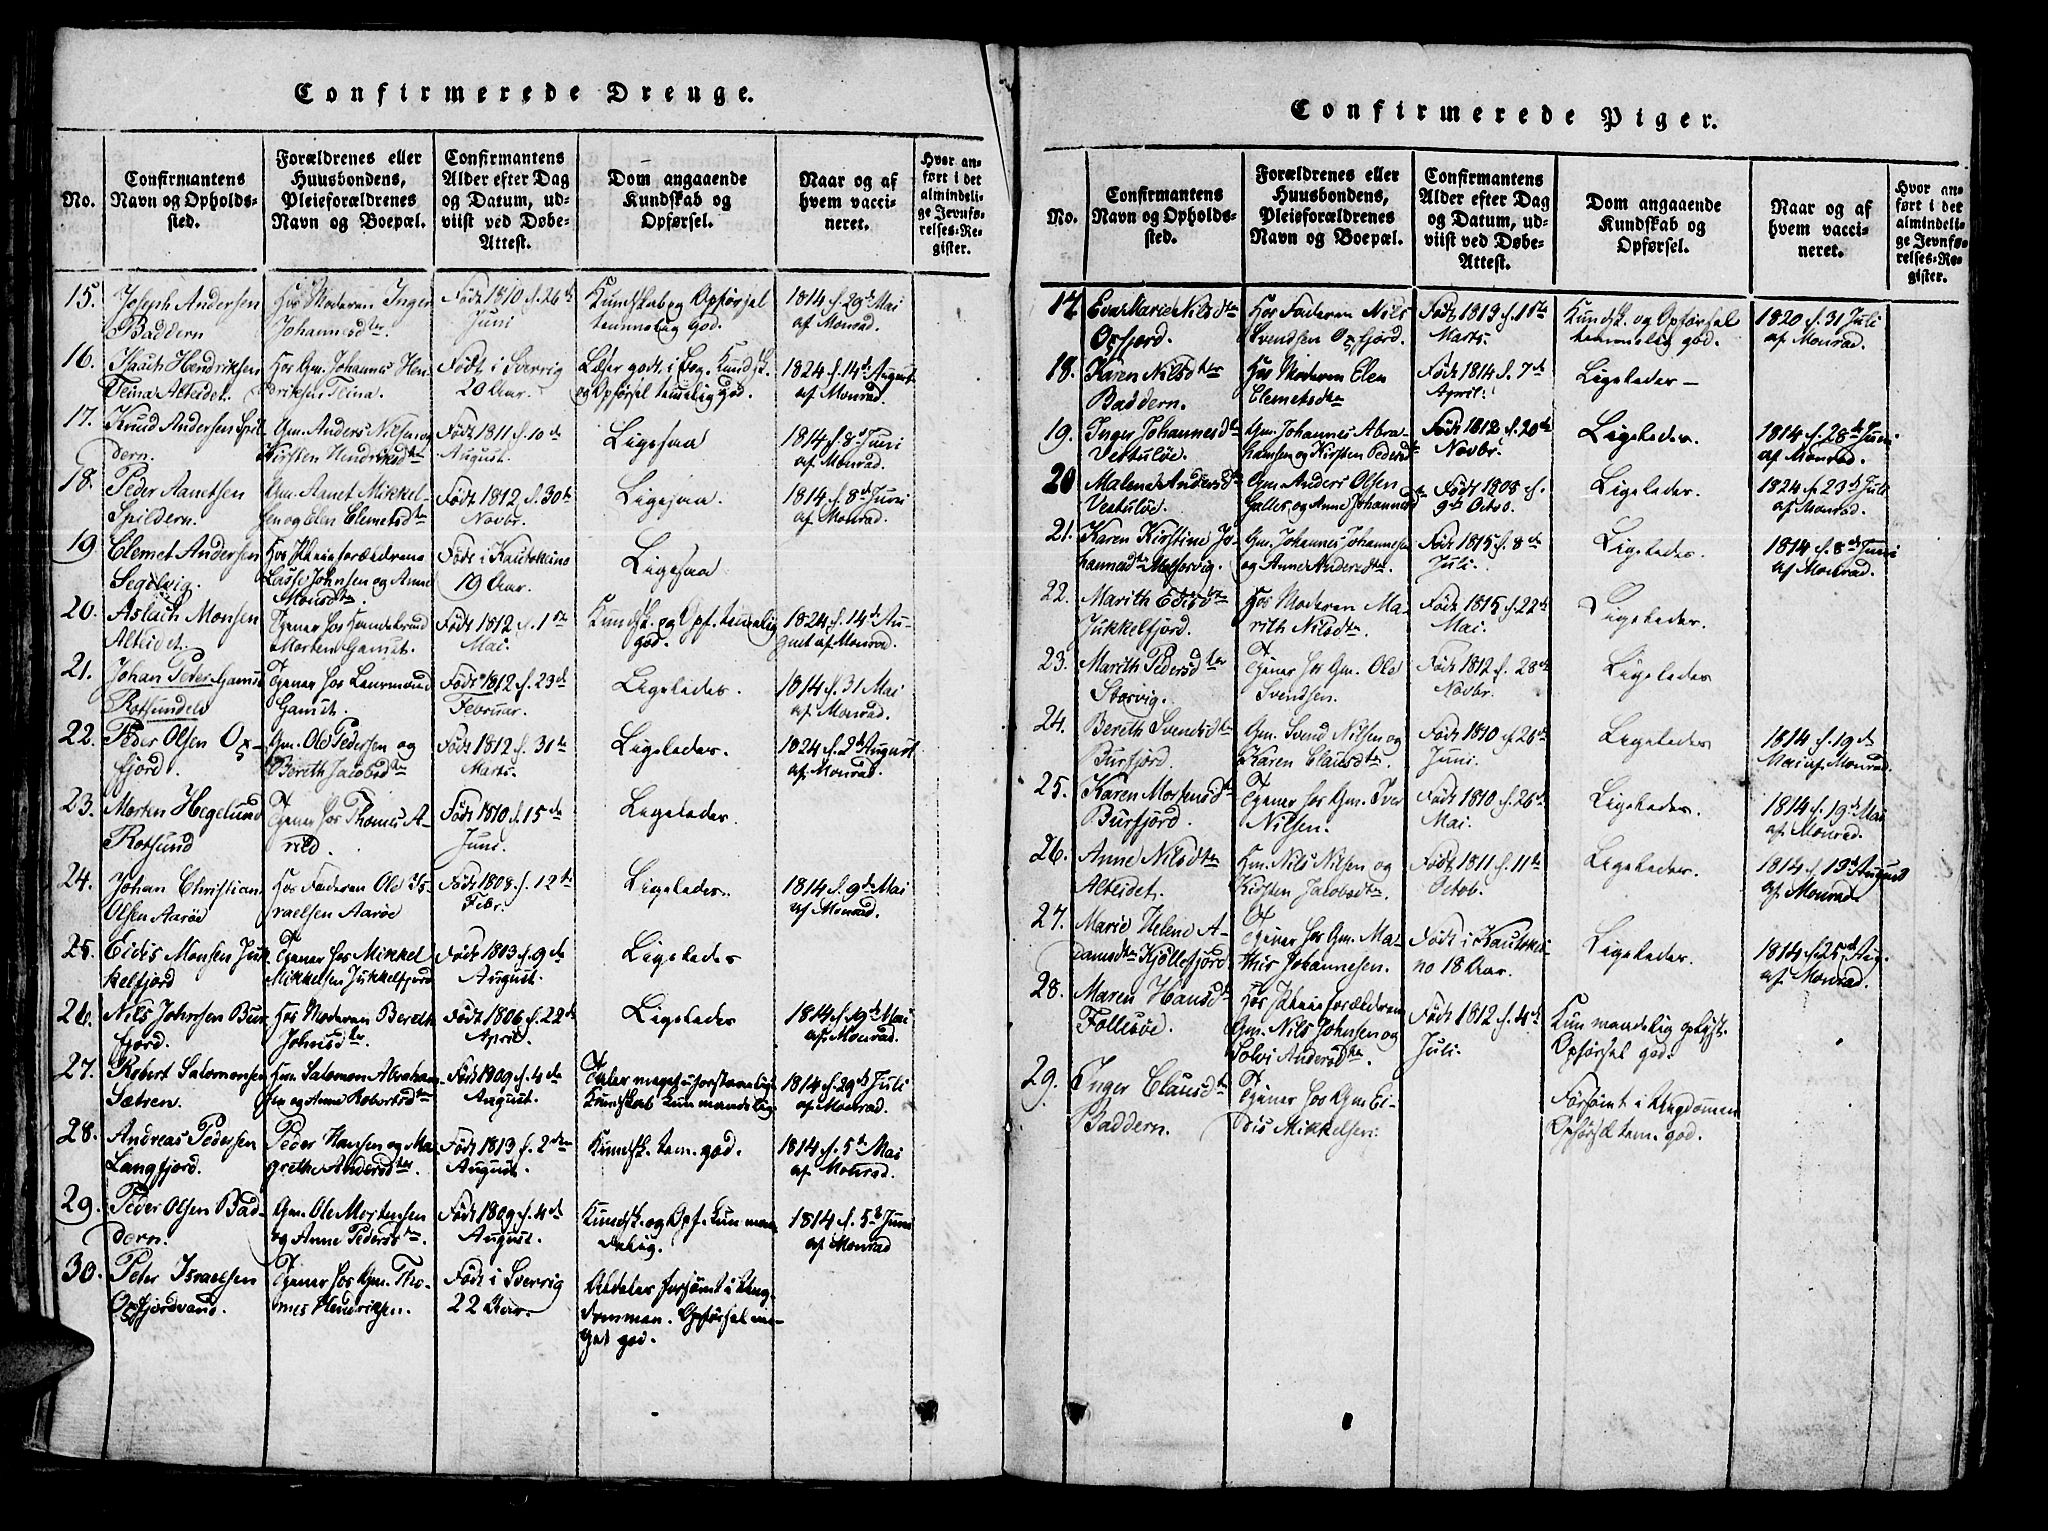 Confirmerede Drenge.
No.
Confirmantens
Navn og Opholds-
sted.
Forældrenes eller
Huusbondens,
Pleieforældrenes
Navn og Boepæl.
Confirmantens
Alder efter Dag
og Datum, ud-
viist ved Døbe-
Attest.
Dom angaaende
Kundskab og
Opførsel.
Naar og af
hvem vacci-
neret.
Hvor an-
ført i det
almindeli-
ge Jevnfø-
relses-Re-
gister.
15. Joseph Andersen
Baddern
Hos Moderen Inger
Johannesdter.
Født 1810 d. 26de
Juni
Kundskab og Opførsel
temmelig god.
1814 d. 29de Mai
af Monrad.
16. Isach Hendriksen
Alteidet.
Hos Gm. Johannes Hen-
driksen
Født i Sverrig
20 Aar.
Læser godt i Bog. Kundsk.
og Opførsel temelig god.
1824 d. 14de August
af Monrad.
17. Knud Andersen Spil-
dern.
Gm. Anders Nilsen og
Kirsten Hendriksdter
Født 1811 d. 10de
August.
Ligesaa
1814 d. 8de Juni
af Monrad.
18. Peder Aanetsen
Spildern.
Gm. Aanet Mikkel-
sen og Elen Clemetsdter
Født 1812 d. 30te
Novbr.
Ligesaa.
1814 d. 8de Juni
af Monrad.
19. Clemet Andersen
Segelvig.
Hos Pleieforældrene
Lasse Johnsen og Anne
Monsdter
Født i Kautokeino
19 Aar.
Ligesaa
20. Aslach Monsen
Alteidet.
Tjener hos Handelsmd
Morten Gamst.
Født 1812 d. 1ste
Mai.
Kundsk. og Opf. temelig
god.
1824 d. 14de Au-
gust af Monrad.
21. Johan Peder Gamst
Rotsundels
Tjener hos Lensmand
Gamst.
Født 1812 d. 23de
Februar.
Ligeledes.
1814 d. 31 Mai
af Monrad.
22. Peder Olsen Ox-
fjord.
Gm. Ole Pedersen og
Bereth Jacobsdter
Født 1812 d. 31te
Marts.
Ligeledes.
1824 d. 2de August
af Monrad.
23. Morten Hegelund
Rotsund
Tjener hos Thomas A-
rild.
Født 1810 d. 15de
Juni.
Ligeledes.
24. Johan Christian
Olsen Aarøe
Hos Faderen Ole Is-
raelsen Aarøe
Født 1808 d. 12te
Febr.
Ligeledes.
1814 d. 9de Mai
af Monrad.
25. Eidis Monsen Juk-
kelfjord
Tjener hos Mikkel
Mikkelsen Jukkelfjord
Født 1803 d. 9de
August.
Ligeledes
26. Nils Johnsen Bur-
fjord.
Hos Moderen Bereth
Johnsdter.
Født 1806 d. 22de
April.
Ligeledes
1814 d. 19de Mai
af Monrad.
27. Robert Salomonsen
Sætren.
Hm. Salomon Abraham-
sen og Anne Robertsdter
Født 1809 d. 4de
August.
Taler meget uforstaaelig
Kundskab kun maadelig.
1814 d. 29de Juli
af Monrad.
28. Andreas Pedersen
Langfjord.
Peder Hansen og Ma-
grethe Andersdter.
Født 1813 d. 2den
August.
Kundsk. tem. god.
1814 d. 5te Mai
af Monrad.
29. Peder Olsen Bad-
dern.
Gm. Ole Mortensen
og Anne Pedersdter.
Født 1809 d. 4de
August.
Kundsk. og Opf. kun maa-
delig.
1814 d. 5te Juni
af Monrad
30. Peter Israelsen
Oxfjordvand.
Tjener hos Gm. Tho-
mes Hendriksen.
Født i Sverrig
22 Aar.
Aldeles forsømt i Ung-
dommen. Opførsel me-
get god.
Confirmerede Piger.
No.
Confirmantens
Navn og Opholds-
sted.
Forældrenes eller
Huusbondens,
Pleieforældrenes
Navn og Boepæl.
Confirmantens
Alder efter Dag
og Datum, ud-
viist ved Døbe-
Attest.
Dom angaaende
Kundskab og
Opførsel.
Naar og af
hvem vacci-
neret.
Hvor an-
ført i det
almindeli-
ge Jevnfø-
relses-Re-
gister.
17. Eva Marie Nilsdter
Oxfjord.
Hos Faderen Nils
Svendsen Oxfjord.
Født 1813 d. 1ste
Marts.
Kundsk. og Opførsel
temmelig god.
1820 d. 31 Juli
af Monrad.
18. Karen Nilsdter
Baddern.
Hos Moderen Elen
Clemetsdter
Født 1814 d. 7de
April.
Ligeledes -
19. Inger Johannesdter
Vestuløe.
Gm. Johannes Abra-
hamsen og Kirsten Pedersdter
Født 1812 d. 20de
Novbr.
Ligeledes.
1814 d. 28de Juni
af Monrad.
20 Malene Andersdter
Vestuløe.
Gm. Anders Olsen
Galles og Anne Johannesdter
Født 1808 d.
9de Octob.
Ligeledes.
1824 d. 23de Juli
af Monrad.
21. Karen Kirstine Jo-
hannesdter Meltervig.
Gm. Johannes Johannesen
og Anne Andersdter.
Født 1815 d. 8de
Juli.
Ligeledes.
1814 d. 8de Juni
af Monrad.
22. Marith Eidisdter
Jukkelfjord.
Hos Moderen Ma-
rith Nilsdter
Født 1815 d. 22de
Mai.
Ligeledes.
23. Marith Pedersdter
Storvig.
Tjener hos Gm. Ole
Svendsen.
Født 1812 d. 28de
Novbr.
Ligeledes
24. Bereth Svendsdter
Burfjord.
Gm. Svend Nilsen og
Karen Clausdter.
Født 1810 d. 20de
Juni.
Ligeledes
1814 d. 19de
Mai af Monrad.
25. Karen Mortensdter
Burfjord.
Tjener hos Gm. Iver
Nilsen.
Født 1810 d. 26de
Mai.
Ligeledes.
1814 d. 19de Mai
af Monrad.
26. Anne Nilsdter
Alteidet.
Hm. Nils Nilsen og
Kirsten Jacobsdter.
Født 1811 d. 11te
Octob.
Ligeledes.
1814 d. 13de August
af Monrad.
27. Marie Helene A-
damsdter Kjøllefjord
Tjener hos Gm. Ma-
this Johannesen.
Født i Kautokei-
no 18 Aar.
Ligeledes.
1814 d. 25de Aug.
af Monrad.
28. Maren Hansdter
Follesøe.
Hos Pleieforældrene
Gm. Nils Johnsen og
Solvi Andersdter.
Født 1812 d. 4de
Juli.
Kun maadelig oplyst.
Opførsel god.
29. Inger Clausdter
Baddern.
Tjener hos Gm. Ei-
dis Mikkelsen.
Forsømt i Ungdommen
Opførsel tem. god.